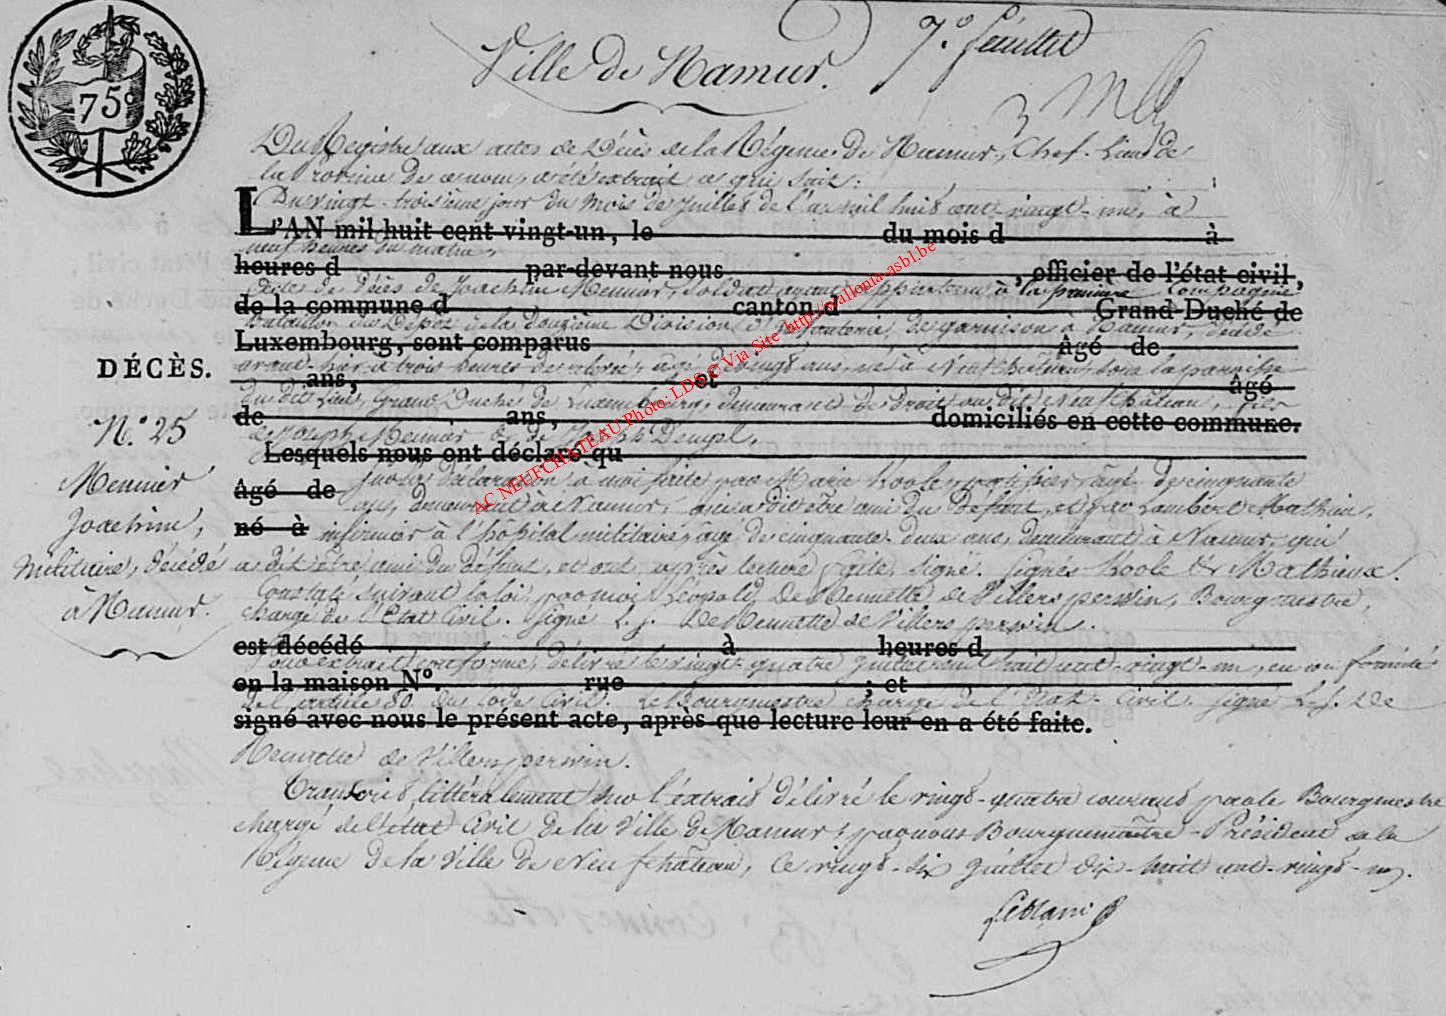 75c
Ville de Namur.
7.e feuillet
Du Registre aux actes de Décès de la Régence de Namur, Chef-Lieu de
la Province de ce nom, a été extrait ce qui suit:
Du vingt-troisième jour du mois de Juillet de l'an mil huit cent vingt-un, à
L'AN mil huit cent vingt-un, le du mois d à
neuf heures du matin,
heures d par-devant nous , officier de l'état civil,
Acte de Décès de Joachim Meunier, soldat ayant appartenu à la première Compagnie
de la commune d canton d Grand-Duché de
Bataillon du Dépôt de la douzième Division d'Infanterie, de garnison à Namur, décédé
Luxembourg, sont comparus âgé de
avant-hier à trois heures de relevé, âgé de vingt ans, né à Neufchâteau, sous la paroisse
ans, et âgé
du dit lieu, Grand Duché de Luxembourg, demeurant de droit au dit Neufchâteau, fils
de ans, domiciliés en cette commune.
de Joseph Meunier & de
Lesquels nous ont déclaré qu
Sur la déclaration à moi faite par Marie Koole âgé de cinquante
âgé de
ans, demeurant à Namur, qui a dit être ami du défunt, et par Lambert Mathieu,
né à
infirmier à l'hôpital militaire, âgé de cinquante-deux ans, demeurant à Namur, qui
a dit être ami du défunt, et ont après lecture faite, signé. Signés Koole & Mathieux.
Constaté suivant la loi, par moi Léopold De Menuette de Villers perwin, Bourgmestre,
chargé de l'Etat Civil. Signé L. J. De Menuette de Villers perwin.
est décédé à heures d
Pour extrait conforme, délivré le vingt-quatre Juillet dix huit cent-vingt-un, en conformité
en la maison N°. rue ; et
de l'article 80 du Code Civil. Le Bourgmestre chargé de l'Etat-Civil. Signé L. J. De
signé avec nous le présent acte, après que lecture leur en a été faite.
Menuette de Villers perwin.
Transcrit littéralement sur l'extrait délivré le vingt-quatre courant par le Bourgmestre
chargé de l'état Civil de la Ville de Namur, par nous Bourguemaître-Président de la
Régence de la Ville de Neufchâteau, ce vingt-six Juillet dix-huit cent-vingt-un.
DÉCÈS.
N.° 25
Meunier
Joachim,
militaire, décédé
à Namur.
AC NEUFCHATEAU Photo: LDS © Via Site http://wallonia-asbl.be